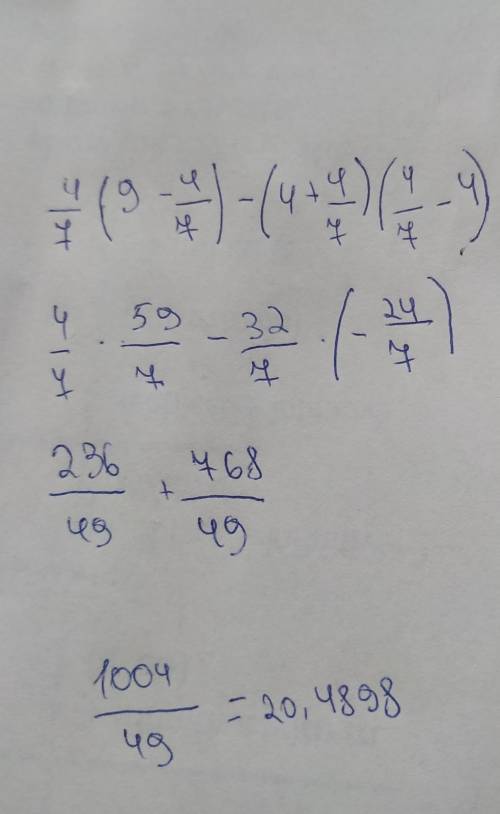 4/7 (9 - 4/7) - (4 + 4/7) (4/7 - 4)
4/7 · 59/7 - 32/7 · (- 24/7)
236/49 + 768/49
1004/49 = 20,4898